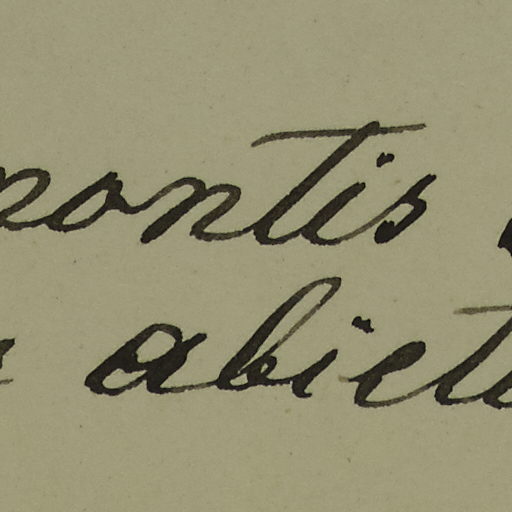 montis
abiet